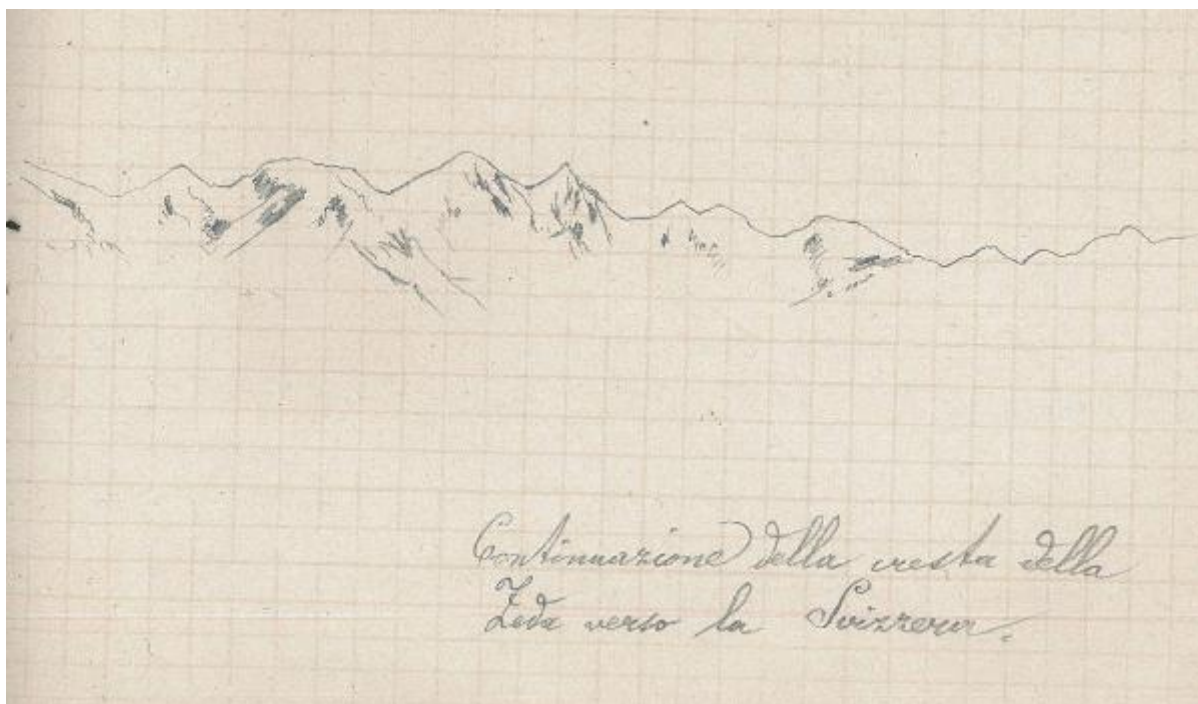 Continuazione della cresta della
Zeda verso la Svizzera.